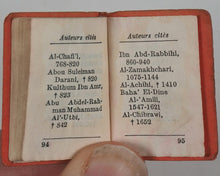 Auteurs cités
Al-Chafi'i,
768-820
Abou Suleiman
Darani, † 820
Kulthum Ibn Amr,
† 823
Abu Abdel-Rah-
man Muhammad
Al-'Utbi,
† 842
94
Auteurs cités
Ibn Abd-Rabbihi,
860-940
Al-Zamakhchari,
1075-1144
Al-Achihi, † 1410
Baha' El-Dine
Al-'Amili,
1547-1621
Al-Chibrawi,
† 1652
95